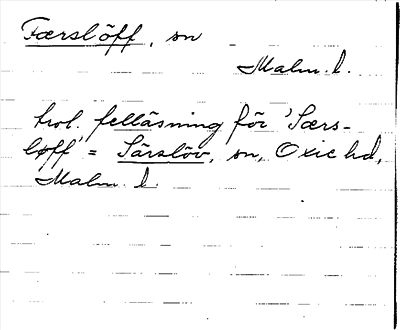 Færslöff, sn
Malm. l.
trol. felläsning för 'Særs-
løff' = Särslöv, sn, Oxie hd,
Malm. l.